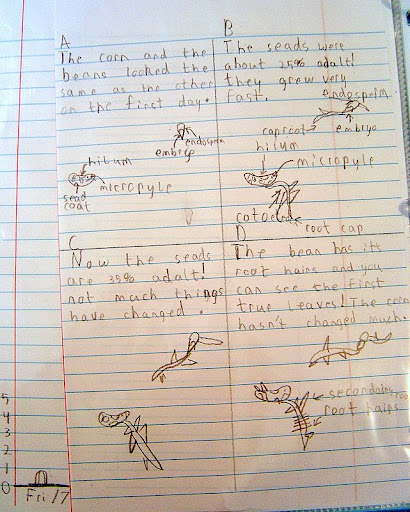 A
The corn and the
beans looked the
same as the other
on the first day.
endosperm
embryo
hilum
micropyle
sead
coat
B
The seads were
about 25% adalt!
they grew very
fast.
endosperm
caproot
embryo
hilum
micropyle
root cap
C
Now the seads
are 35% adalt!
not much things
have changed.
D
The bean has it's
root hairs and you
can see the first
true leaves! The corn
hasn't changed much.
secondairy
root hairs
5
4
3
2
1
0
Fri 17